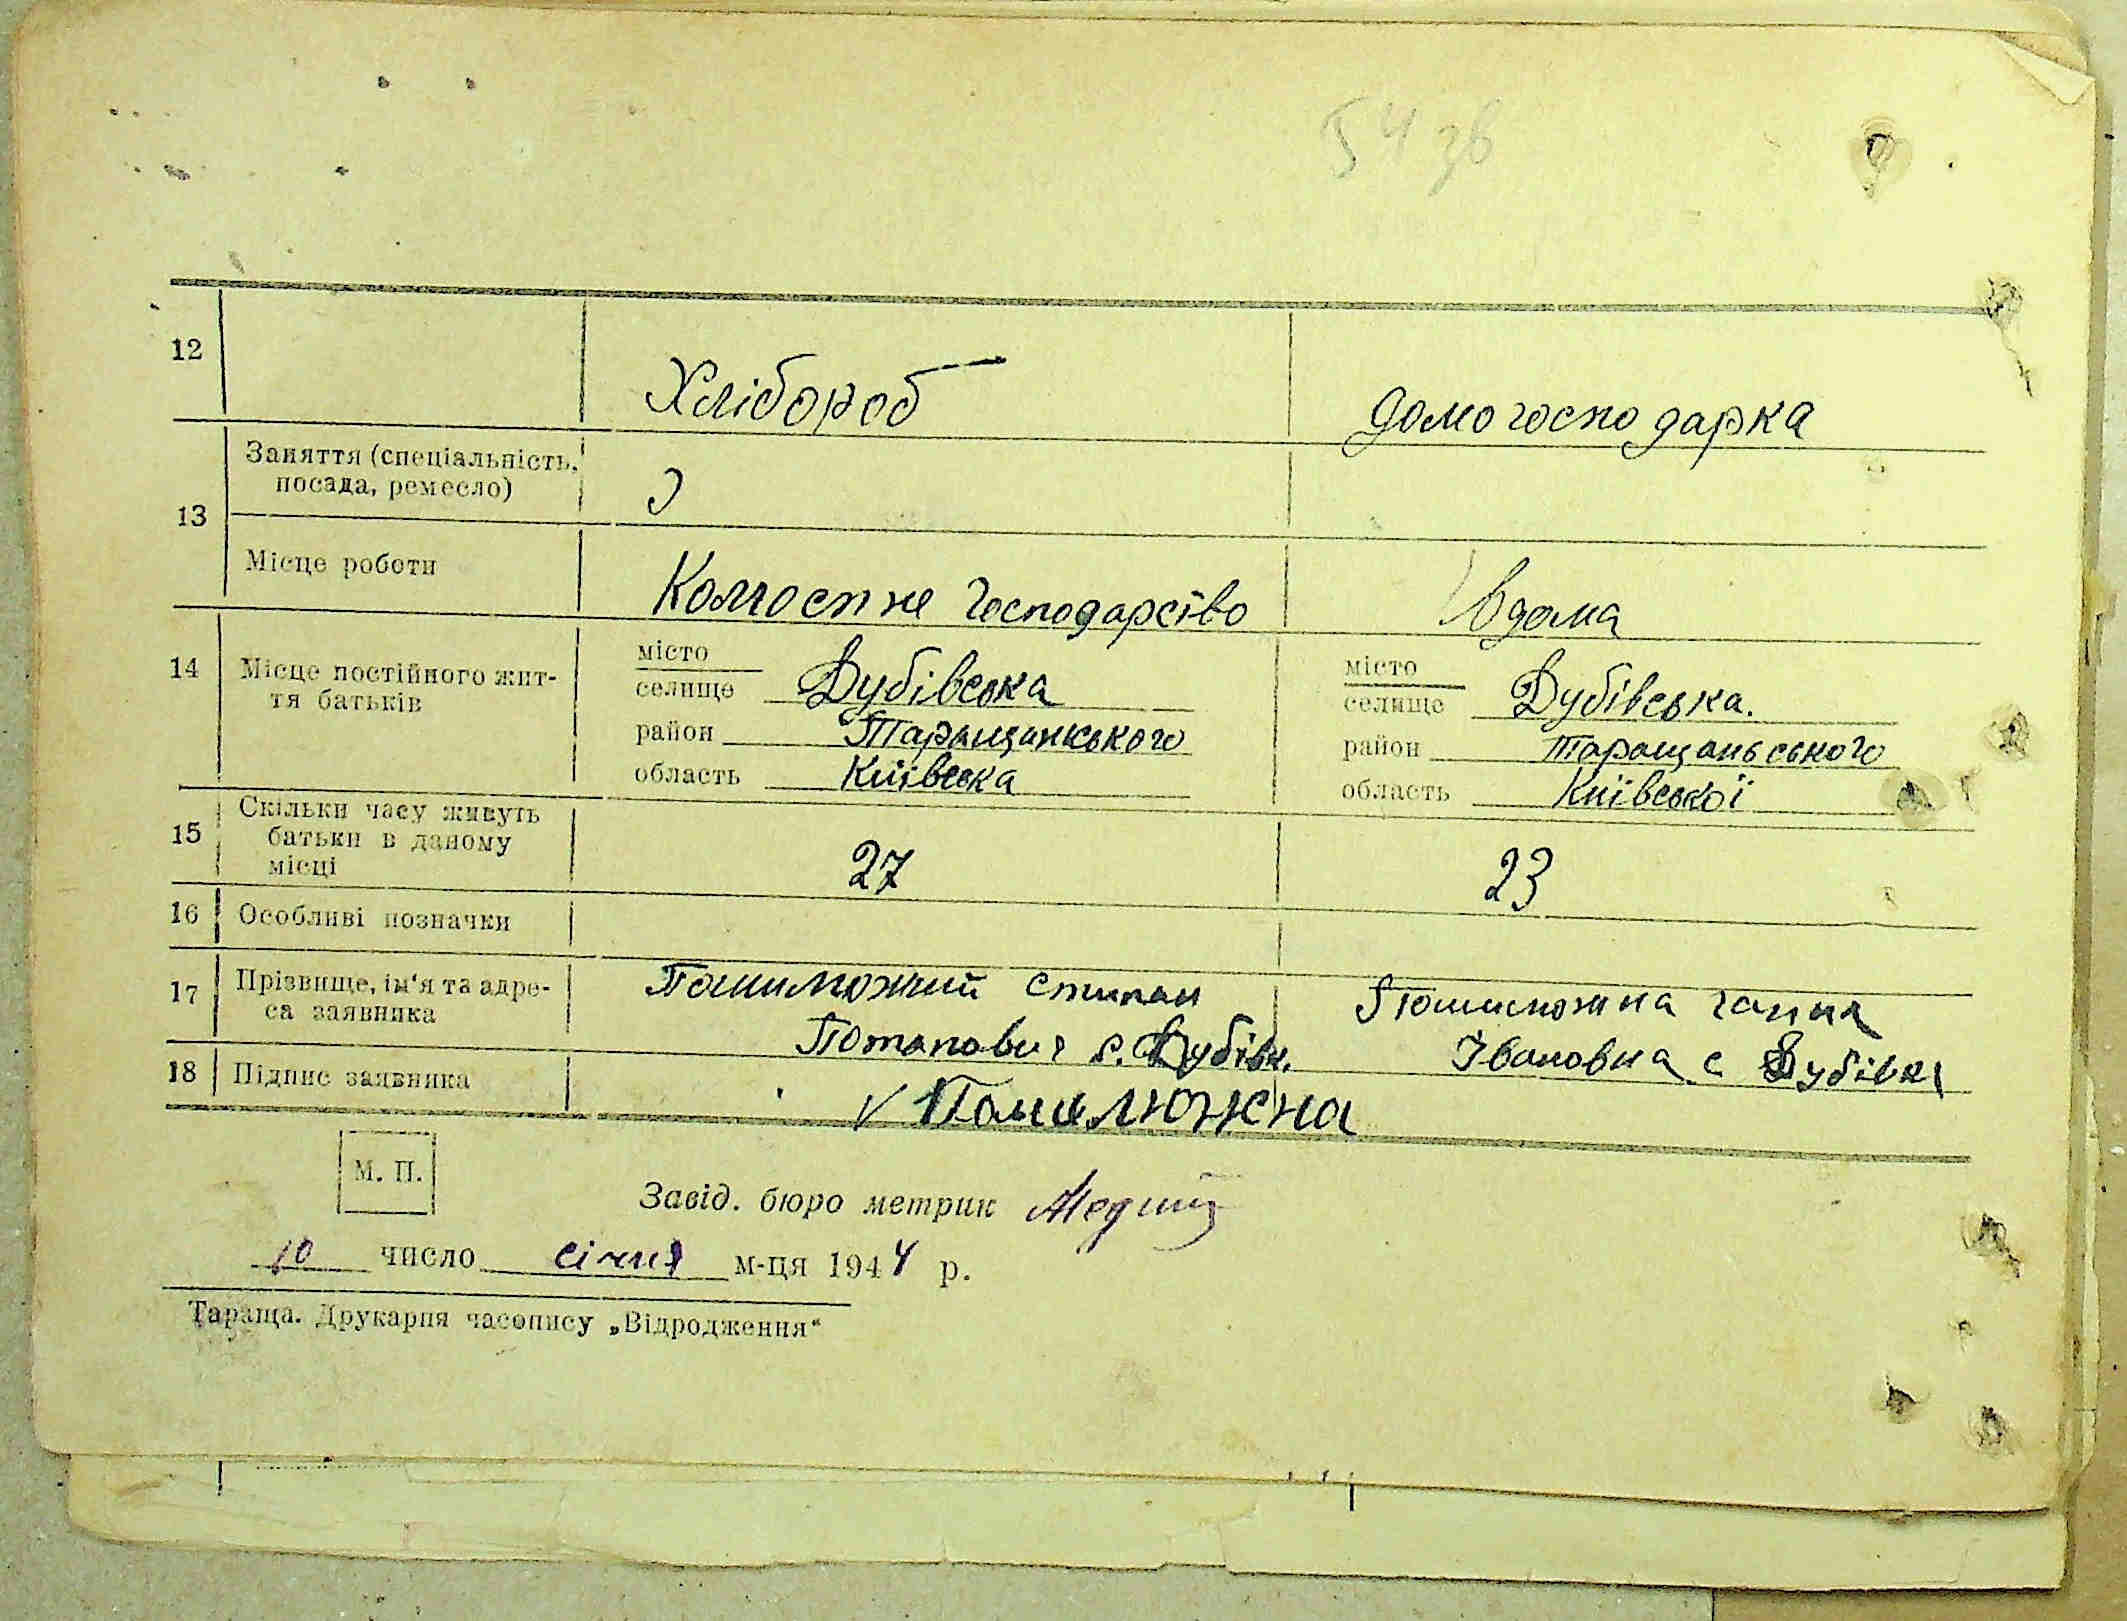 54 зв
12 Хлібороб домогосподарка
13 Заняття (спеціальність, посада, ремесло)
Місце роботи Колгоспне господарство вдома
14 Місце постійного жит-
тя батьків
місто
селище Дубівська
район Таращанського
область Київська
місто
селище Дубівська.
район Таращанського
область Київської
15 Скільки часу живуть
батьки в даному
місці
27 23
16 Особливі позначки
17 Прізвище, ім'я та адре-
са заявника
Степан
Потапович с. Дубівк.
Ганна
Івановна с Дубівка
18 Підпис заявника
Помилюжна
М. П.
Завід. бюро метрик
10 число січня м-ця 1944 р.
Тараща. Друкарня часопису „Відродження“